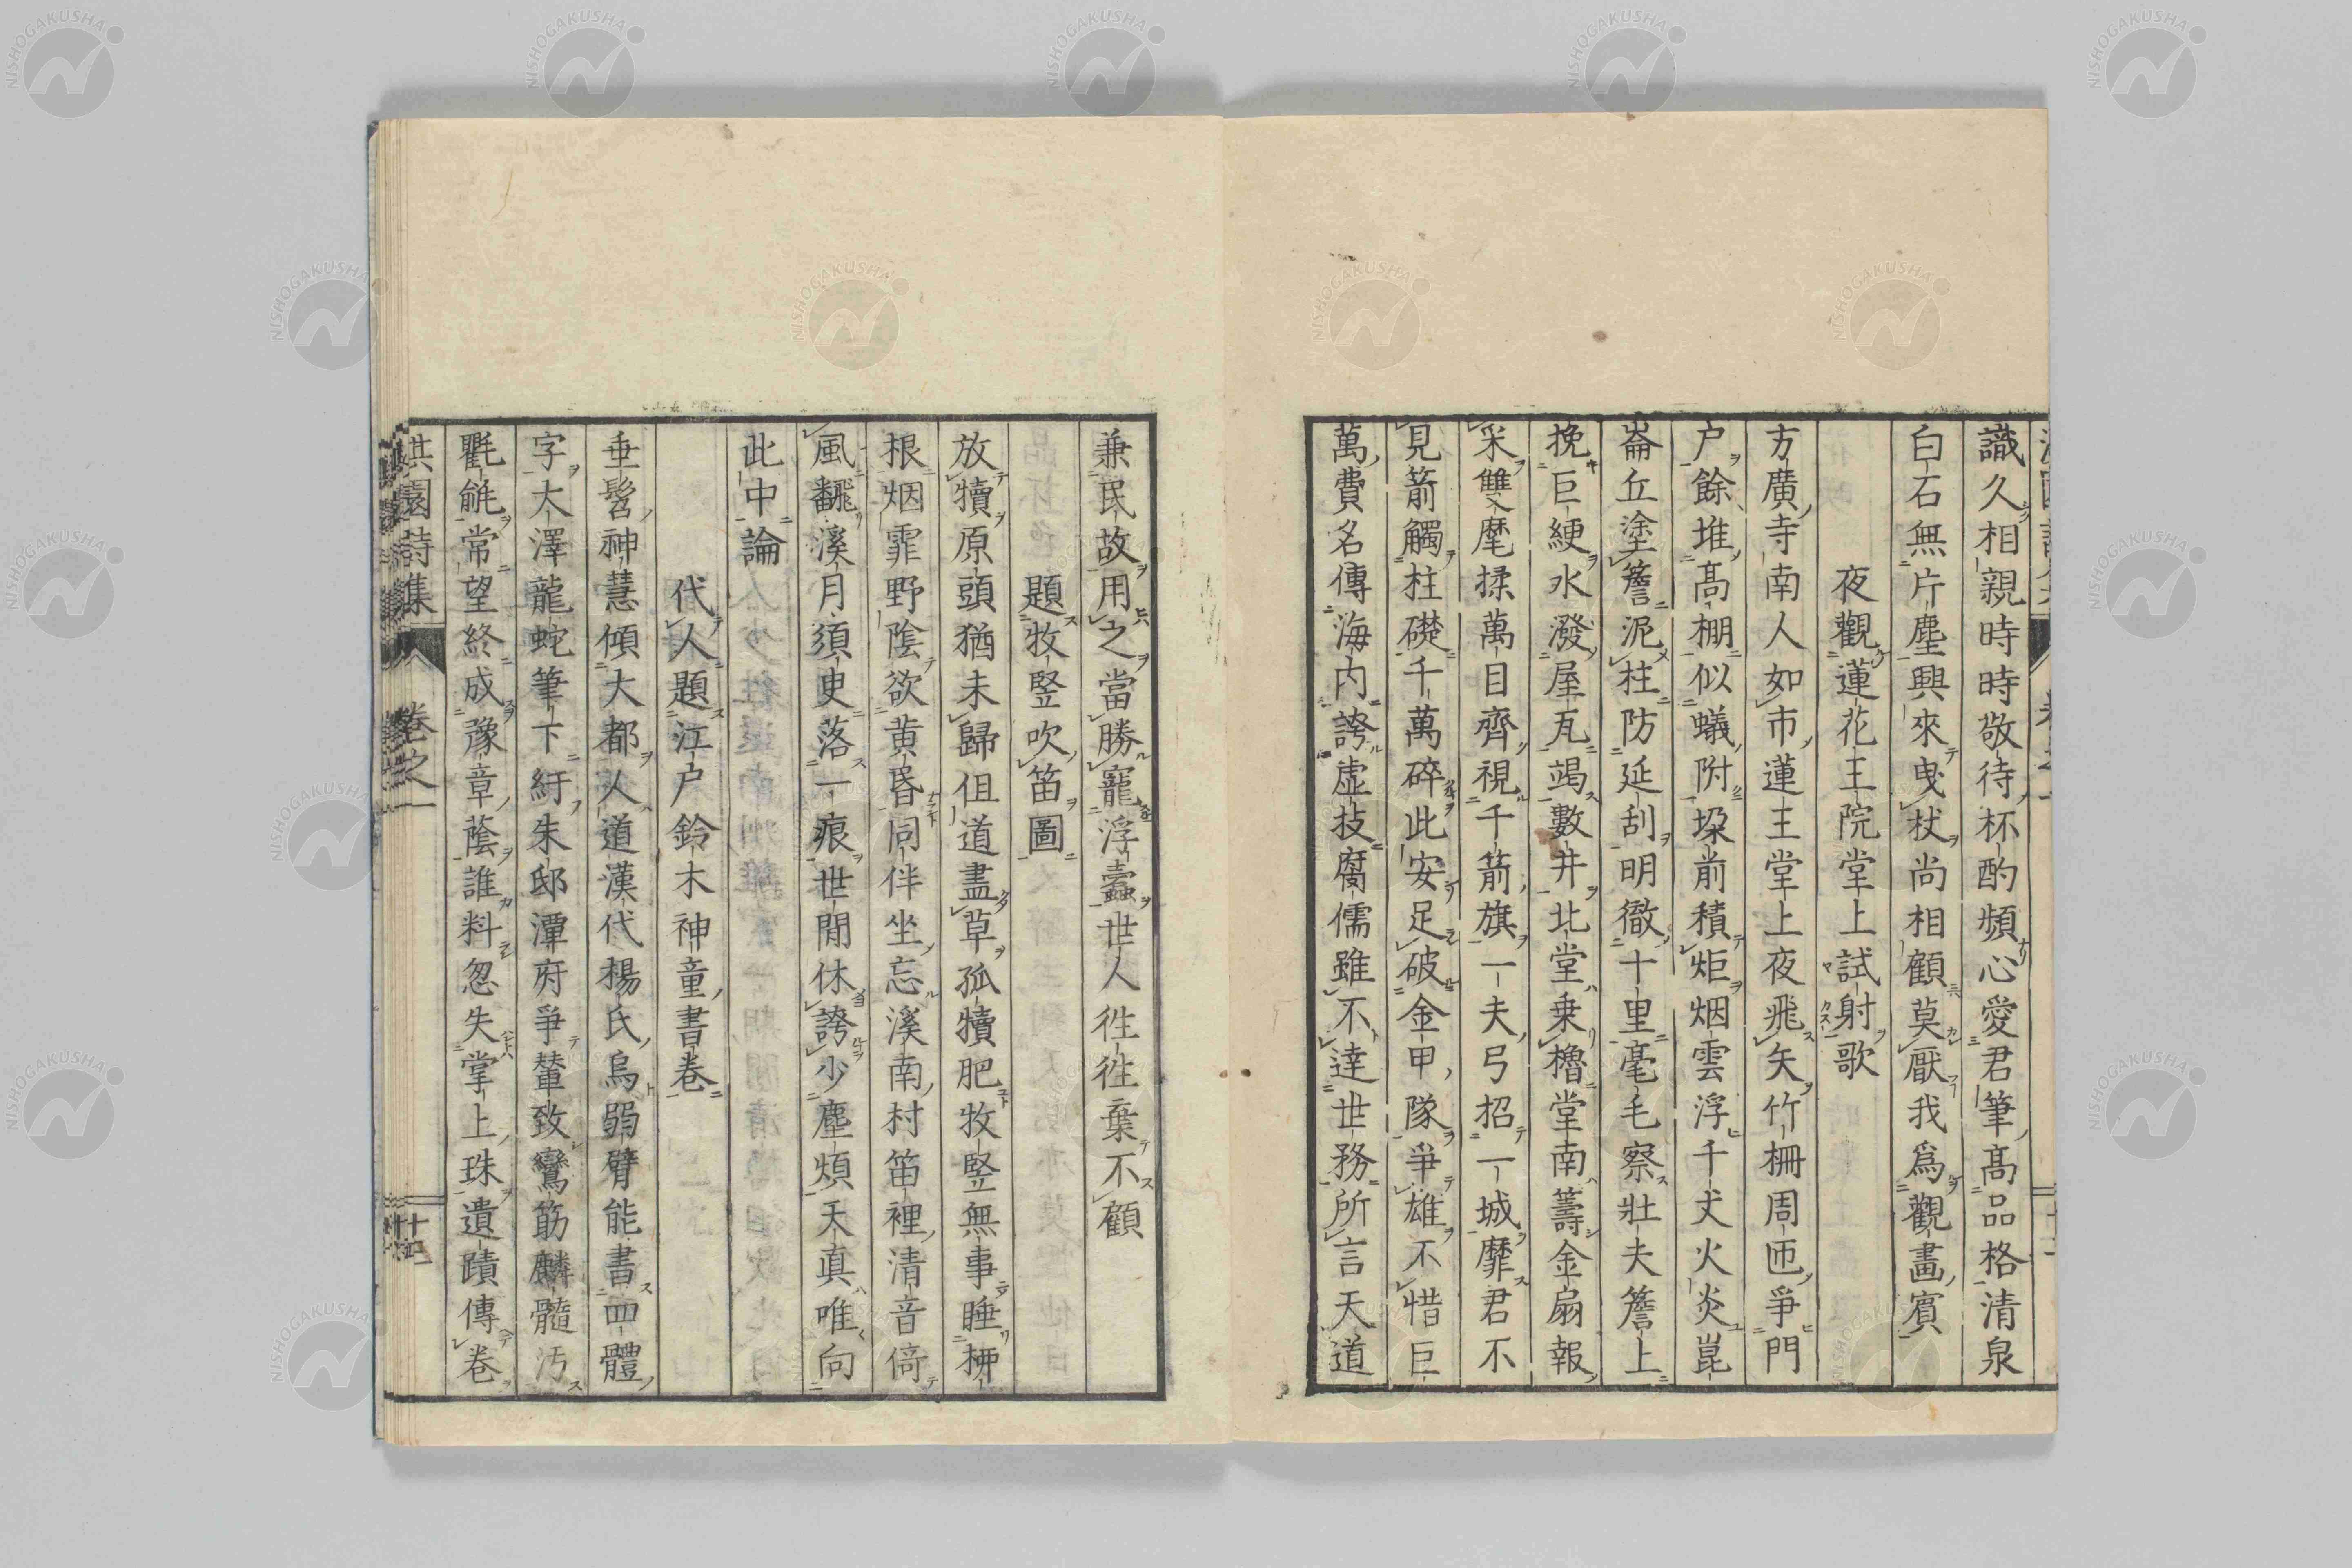 識久相親時時敬待杯酌頻心愛君筆髙品格清泉
白石無片塵興來曳杖尚相顧莫厭我爲觀畫賓
夜觀蓮花王院堂上試射歌
方廣寺南人如市蓮王堂上夜飛矢竹柵周匝爭門
户餘堆髙棚似蟻附垜前積炬烟雲浮千丈火炎崑
崙丘塗簷泥柱防延刮明徹十里毫毛察壯夫簷上
挽巨綆水潑屋瓦竭數井北堂乗櫓堂南籌金扇報
采雙麾揉萬目齊視千箭旗一夫弓招一城靡君不
見箭觸柱礎千萬碎此安足破金甲隊爭雄不惜巨
萬費名傳海内誇虚技腐儒雖不達世務所言天道
兼民故用之當勝寵浮蠹世人徃徃棄不顧
題牧竪吹笛圖
放犢原頭猶未歸但道盡草孤犢肥牧竪無事睡柳
根烟霏野陰欲黄昏同伴坐忘溪南村笛裡清音倚
風飜溪月須臾落一痕世閒休誇少塵煩天真唯向
此中論
代人題江户鈴木神童書卷
垂髫神慧傾大都人道漢代楊氏烏弱臂能書四體
字大澤龍蛇筆下紆朱邸潭府爭輦致鸞筋麟髓汚
氍毹常望終成豫章蔭誰料忽失掌上珠遺蹟傳卷
淇園詩集 卷之一 十四
NISHOGAKUSHA